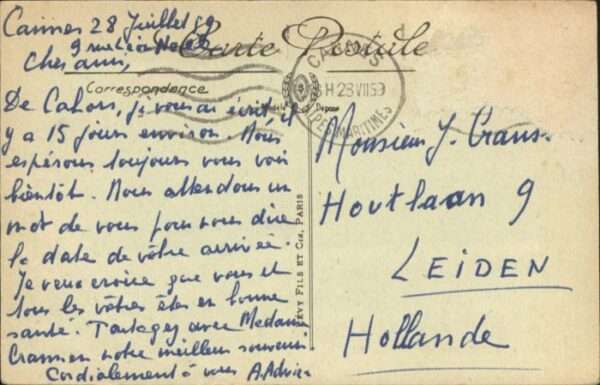 Cannes 28 Juillet 59
Carte Postale
Chers amis,
Correspondance
De Cahors, je vous ai écrit il
y a 15 jours environ. Nous
espérons toujours vous voir
bientôt. Nous attendons un
mot de vous pour nous dire
la date de vôtre arrivée.
Je veux croire que vous et
tous les vôtres êtes en bonne
santé. Partagez avec Madame
Cramer notre meilleur souvenir.
Cordialement à vous A.
CANNES
H 28 VII 59
ALPES MARITIMES
LÉVY FILS ET CIE, PARIS
Monsieur J.
Houtlaan 9
LEIDEN
Hollande